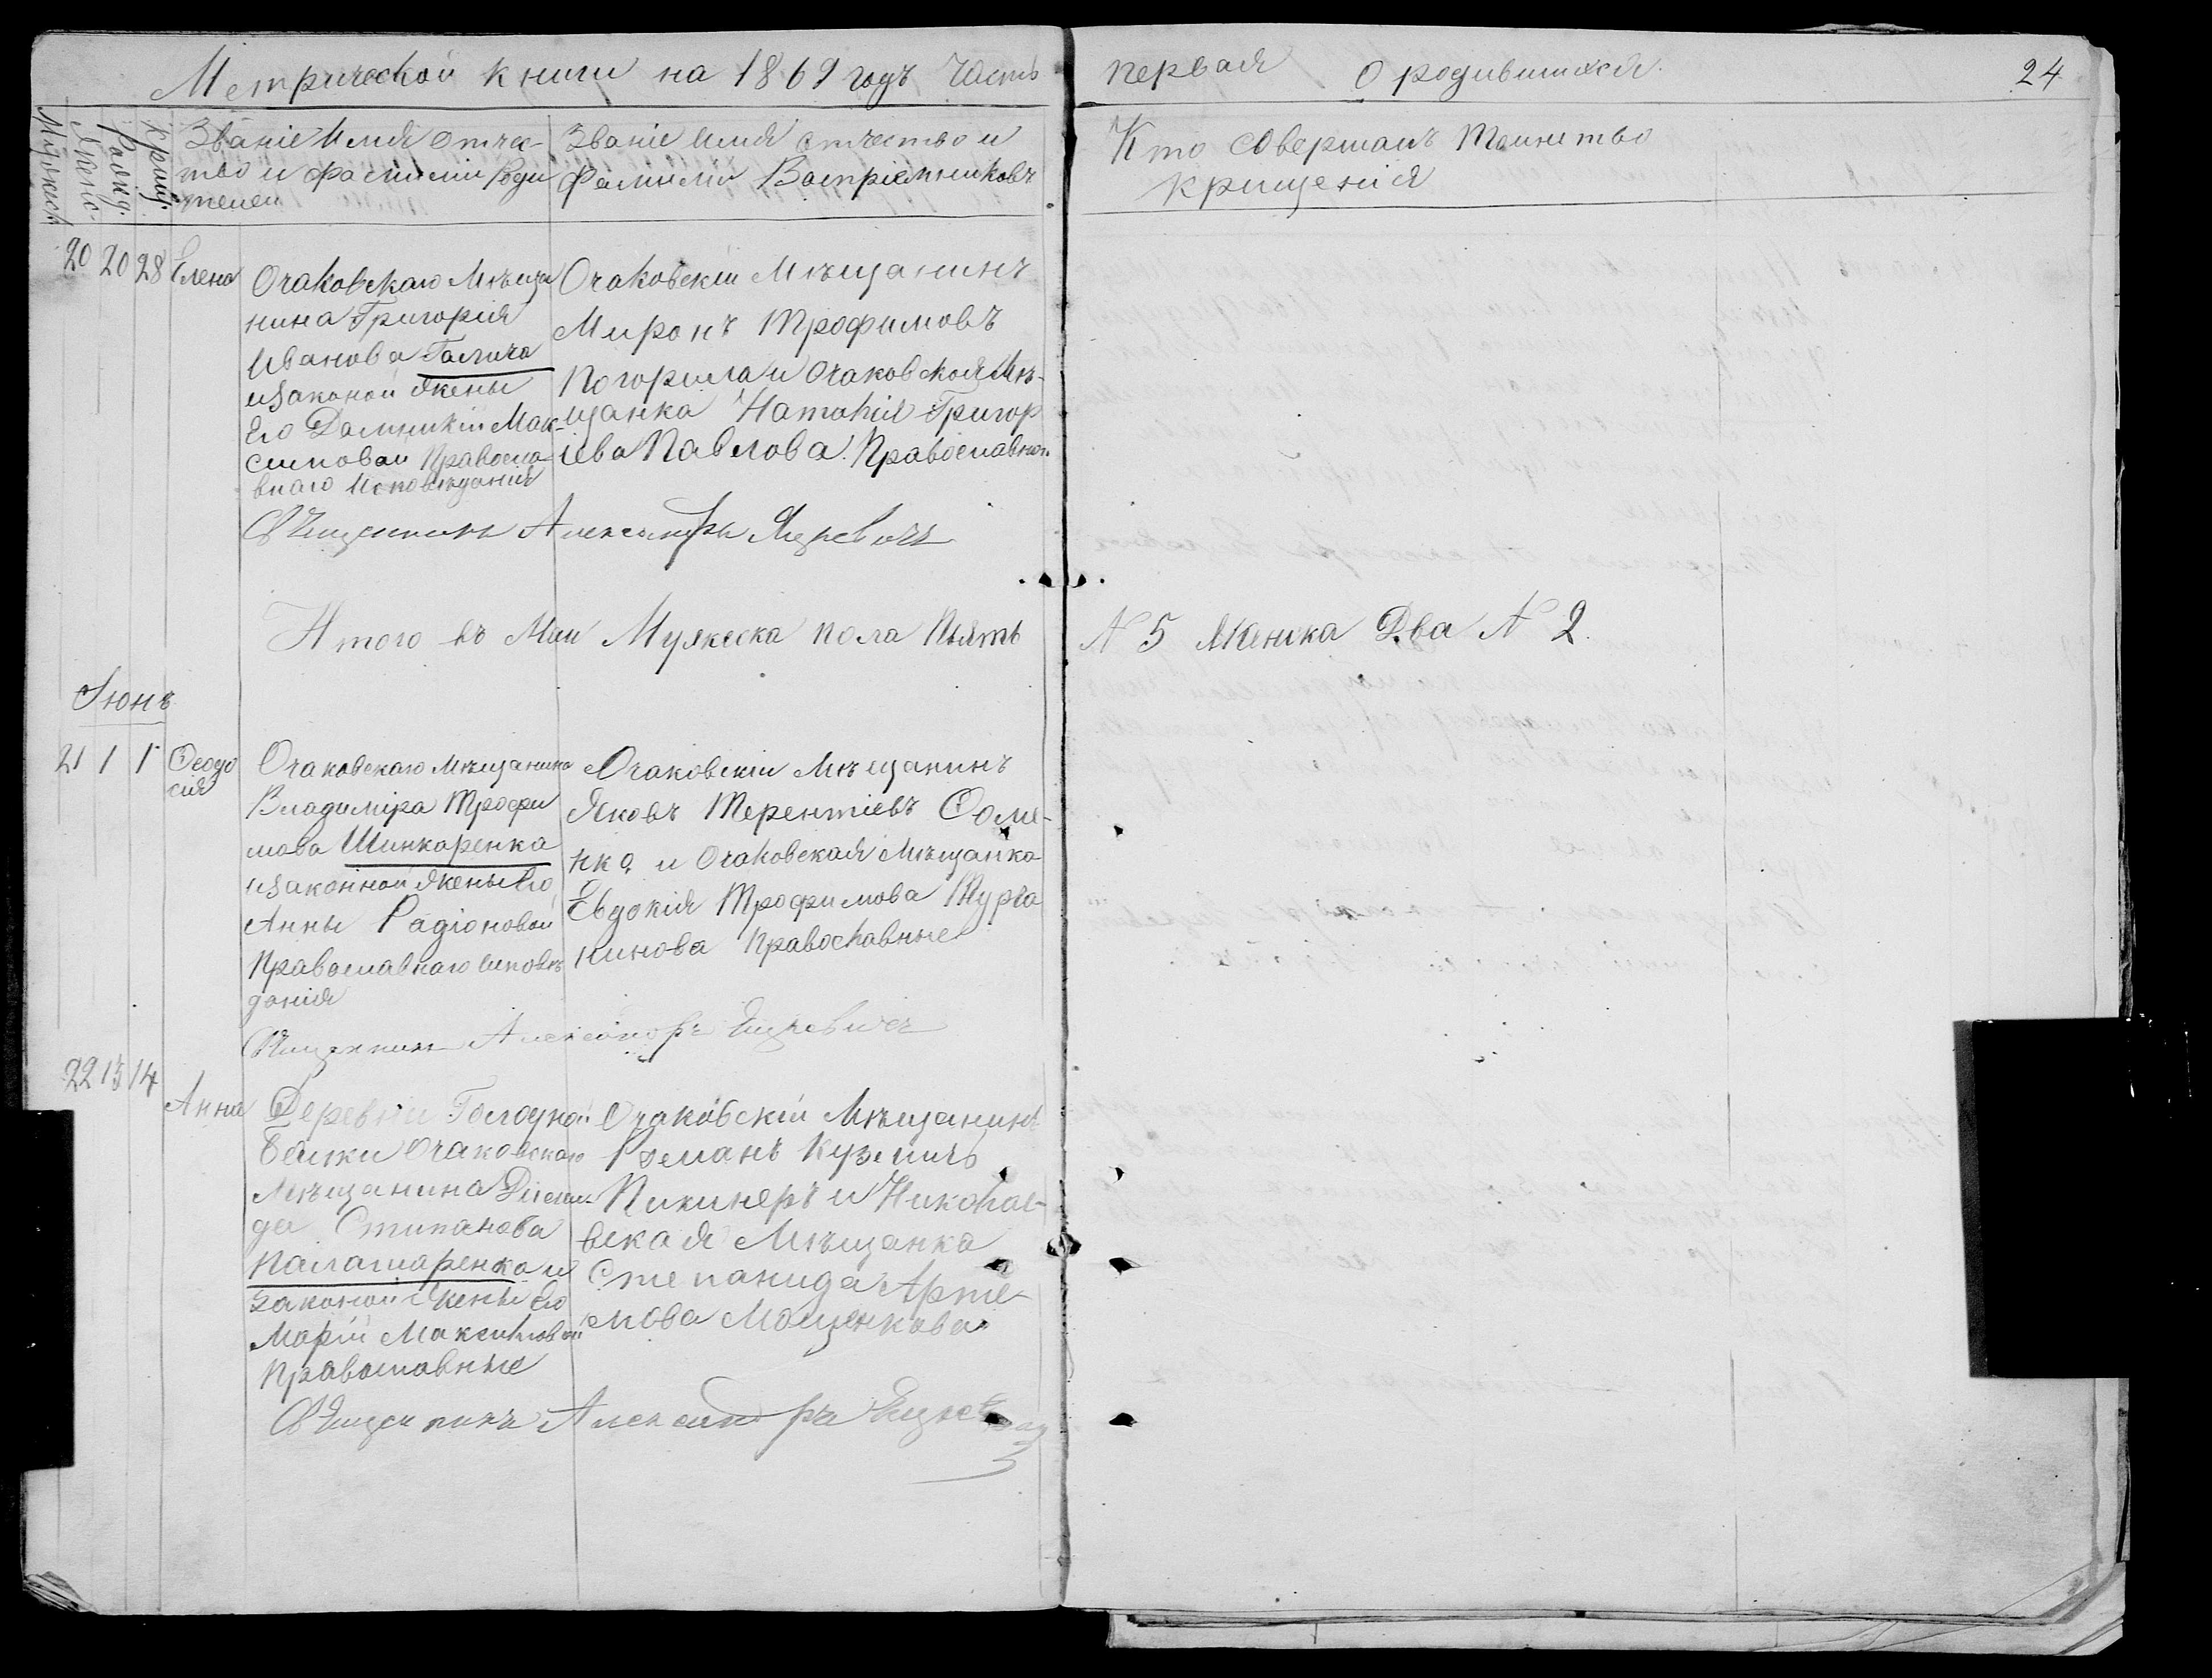 Метрической книги на 1869 годъ Часть первая О родившихся. 24
Мужеск.
Женс-
Рожд.
Крищ.
Званіе Имя отчес-
тво и фамиліи роди
телей
Званіе имя отчество и
Фамиліи Воспріемниковъ
Кто совершалъ таинство
крищенія
20 20 28 Елена
Очаковскаго Мѣща
нина Григорія
Иванова Галича
изаконой жены
Его Домникіи Мак-
симовой Православ-
внаго Исповѣданія
Очаковскіи Мѣщанинъ
Миронъ Трофимовъ
Погорила и Очаковская Мѣ-
щанка Наталія Григор
іева Павлова. Православные
Священникъ Александръ Яцкевичъ
Итого въ Маи Мужеска пола Пьять N 5 Женска Два N 2.
Іюнъ
21 1 1 Ѳеодо
сія
Очаковскаго мѣщанина
Владиміра Трофи
мова Шинкаренка
изаконной жены Его
Анны Радіоновой
Православнаго исповѣ
данія
Очаковскіи Мѣщанинъ
Яковъ Терентіевъ Ѳоме-
нко и Очаковская мѣщанка
Евдокія Трофимова Турча
нинова Православные
Священникъ Александръ Яцкевичъ
22 13 14
Анна
Деревни Голодной
балки Очаковскаго
Мѣщанина Діоми-
да Стипанова
Паламаренка и
законой жены Его
Маріи Максимовой
Православные
Очаковскіи Мѣщанинъ
Романъ Кузмичъ
Пикинеръ и Николае-
вская Мѣщанка
Степанида Арте-
мова Мощенкова
Священникъ Александръ Яцкевичъ